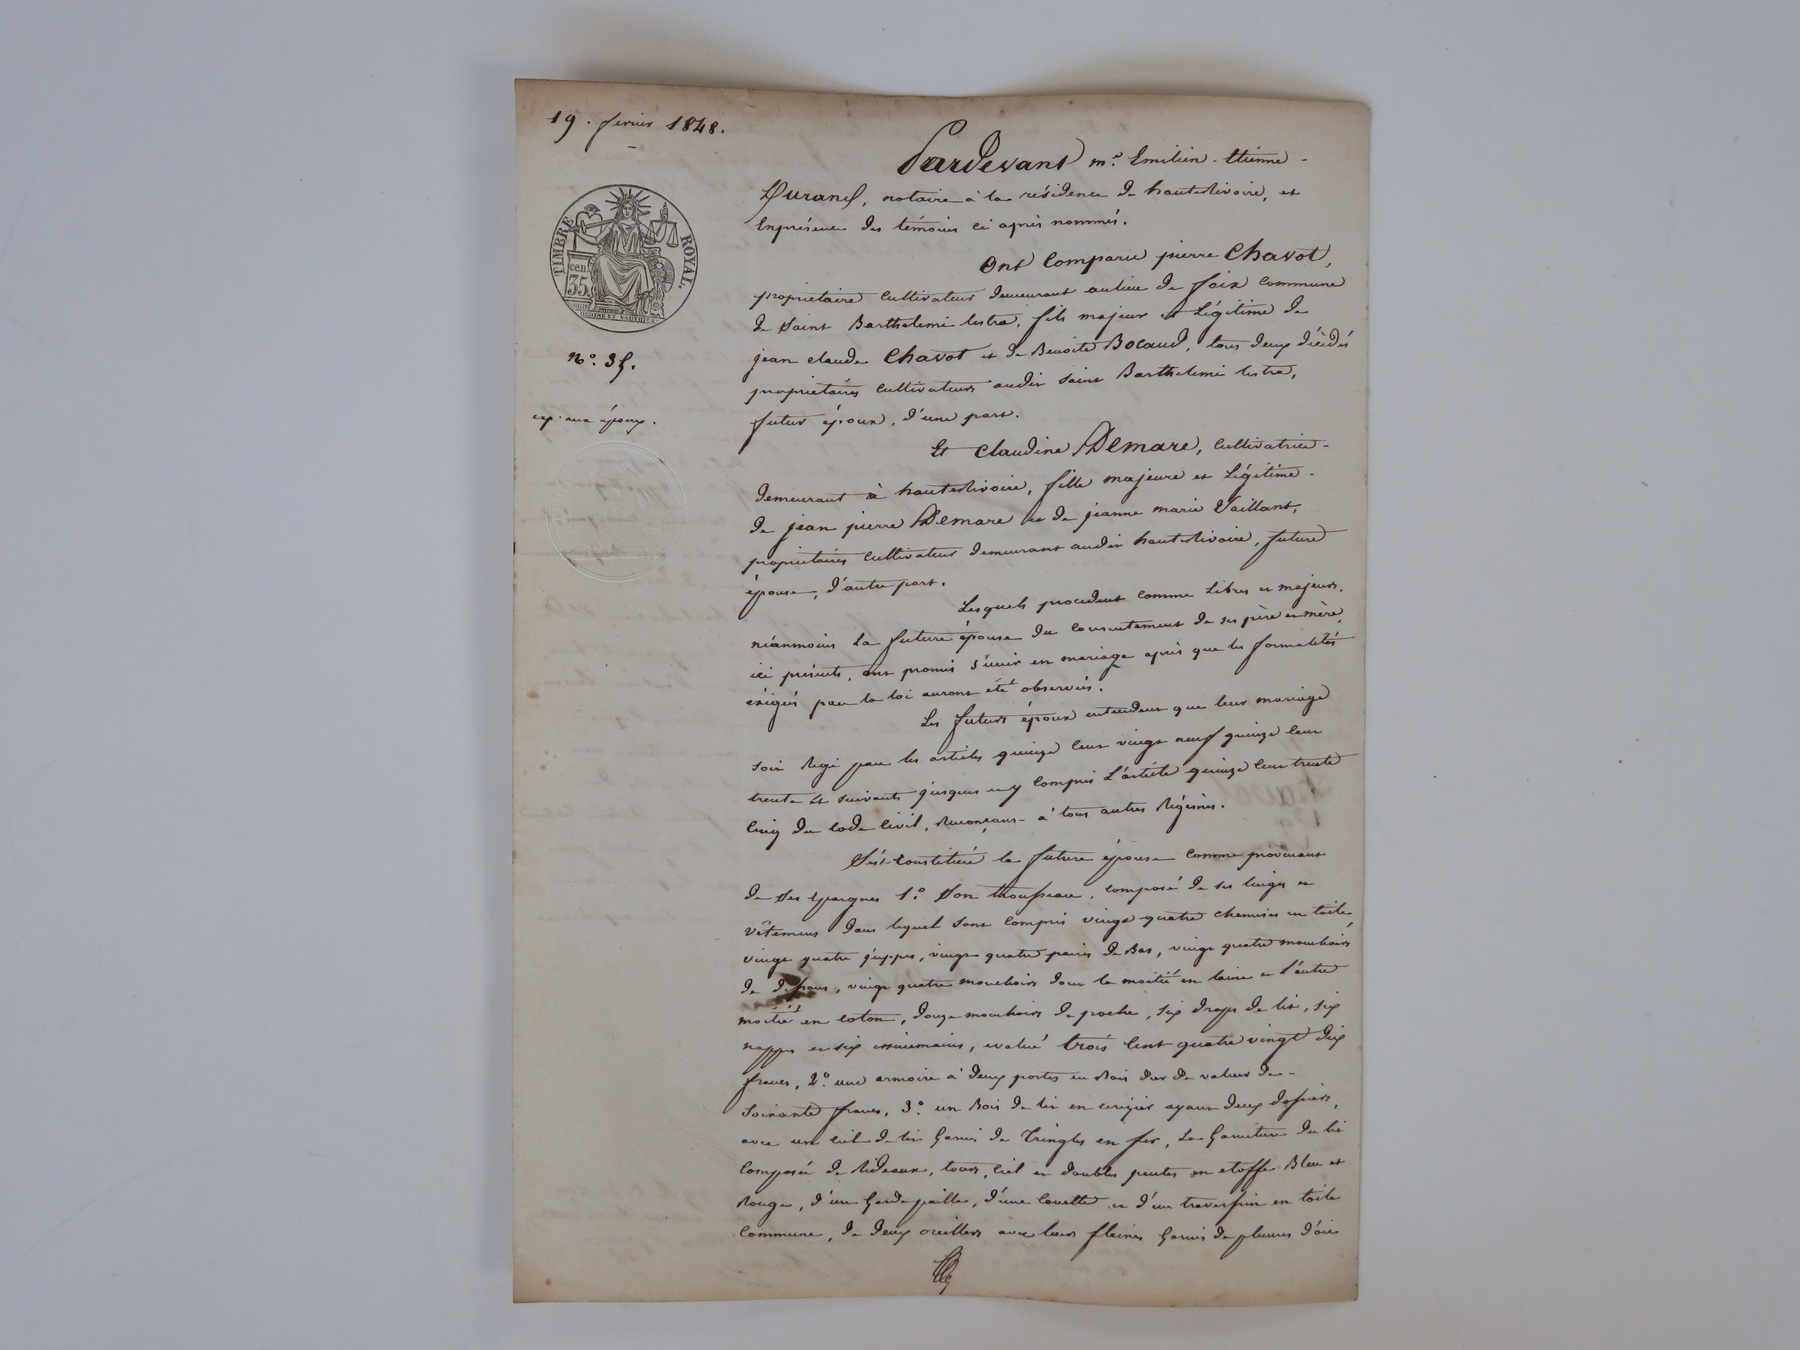 19. fevrier 1848.
TIMBRE ROYAL.
cen.
35
N.º 35.
exp. aux époux.
Pardevant m.e Emilien-Etienne-
Durand, notaire à la résidence de hauterivoire, et
Enprésence des témoins ci après nommés.
Ont Comparu pierre Chavot,
propriétaire cultivateur demeurant aulieu de foix commune
de Saint Barthelemi lestra, fils majeur et Légitime de
jean claude Chavot et de Benoite Bocaud, tous deux décédés
propriétaires cultivateurs audit Saint Barthelemi lestra,
futur époux, d'une part.
Et Claudine Demare, cultivatrice-
demeurant à hauterivoire, fille majeure et Légitime-
de jean pierre Demare et de jeanne marie Vaillant,
propriétaires cultivateurs demeurant audit hauterivoire, future
épouse, d'autre part.
Lesquels procedent comme Libres et majeurs,
néanmoins la future épouse du consentement de ses père et mère,
ici présents, ont promis s'unir en mariage après que les formalités
éxigées par la loi auront été observées.
Les futurs époux entendent que leur mariage
soit Régi par les articles quinze cent vingt neuf quinze cent
trente et suivants jusques et y compris L'article quinze cent trente
cinq du code civil, Renonçant à tous autres Régimes.
S'est constituée la future épouse comme provenant
de ses épargnes 1.º Son trousseau, composé de ses linges et
vêtemens dans lequel sont compris vingt quatre chemises en toile,
vingt quatre juppes, vingt quatre paires de Bas, vingt quatre mouchoirs
de dessous, vingt quatre mouchoirs dont la moitié en laine et L'autre
moitié en coton, douze mouchoirs de poche, six draps de lit, six
nappes et six essuiemains, evalué trois cent quatre vingt dix
francs, 2.º une armoire à deux portes en Bois dur de valeur de-
soixante francs, 3.º un Bois de lit en cerizier ayant deux dossiers,
avec un ciel de lit Garni de Tringles en fer, La Garniture du lit
composée de Rideaux, tours, ciel et doubles pentes en etoffe Bleu et
Rouge, d'un Garde paille, d'une couette et d'un traversin en toile
commune, de deux oreillers avec leurs fleines Garnis de plumes d'oie